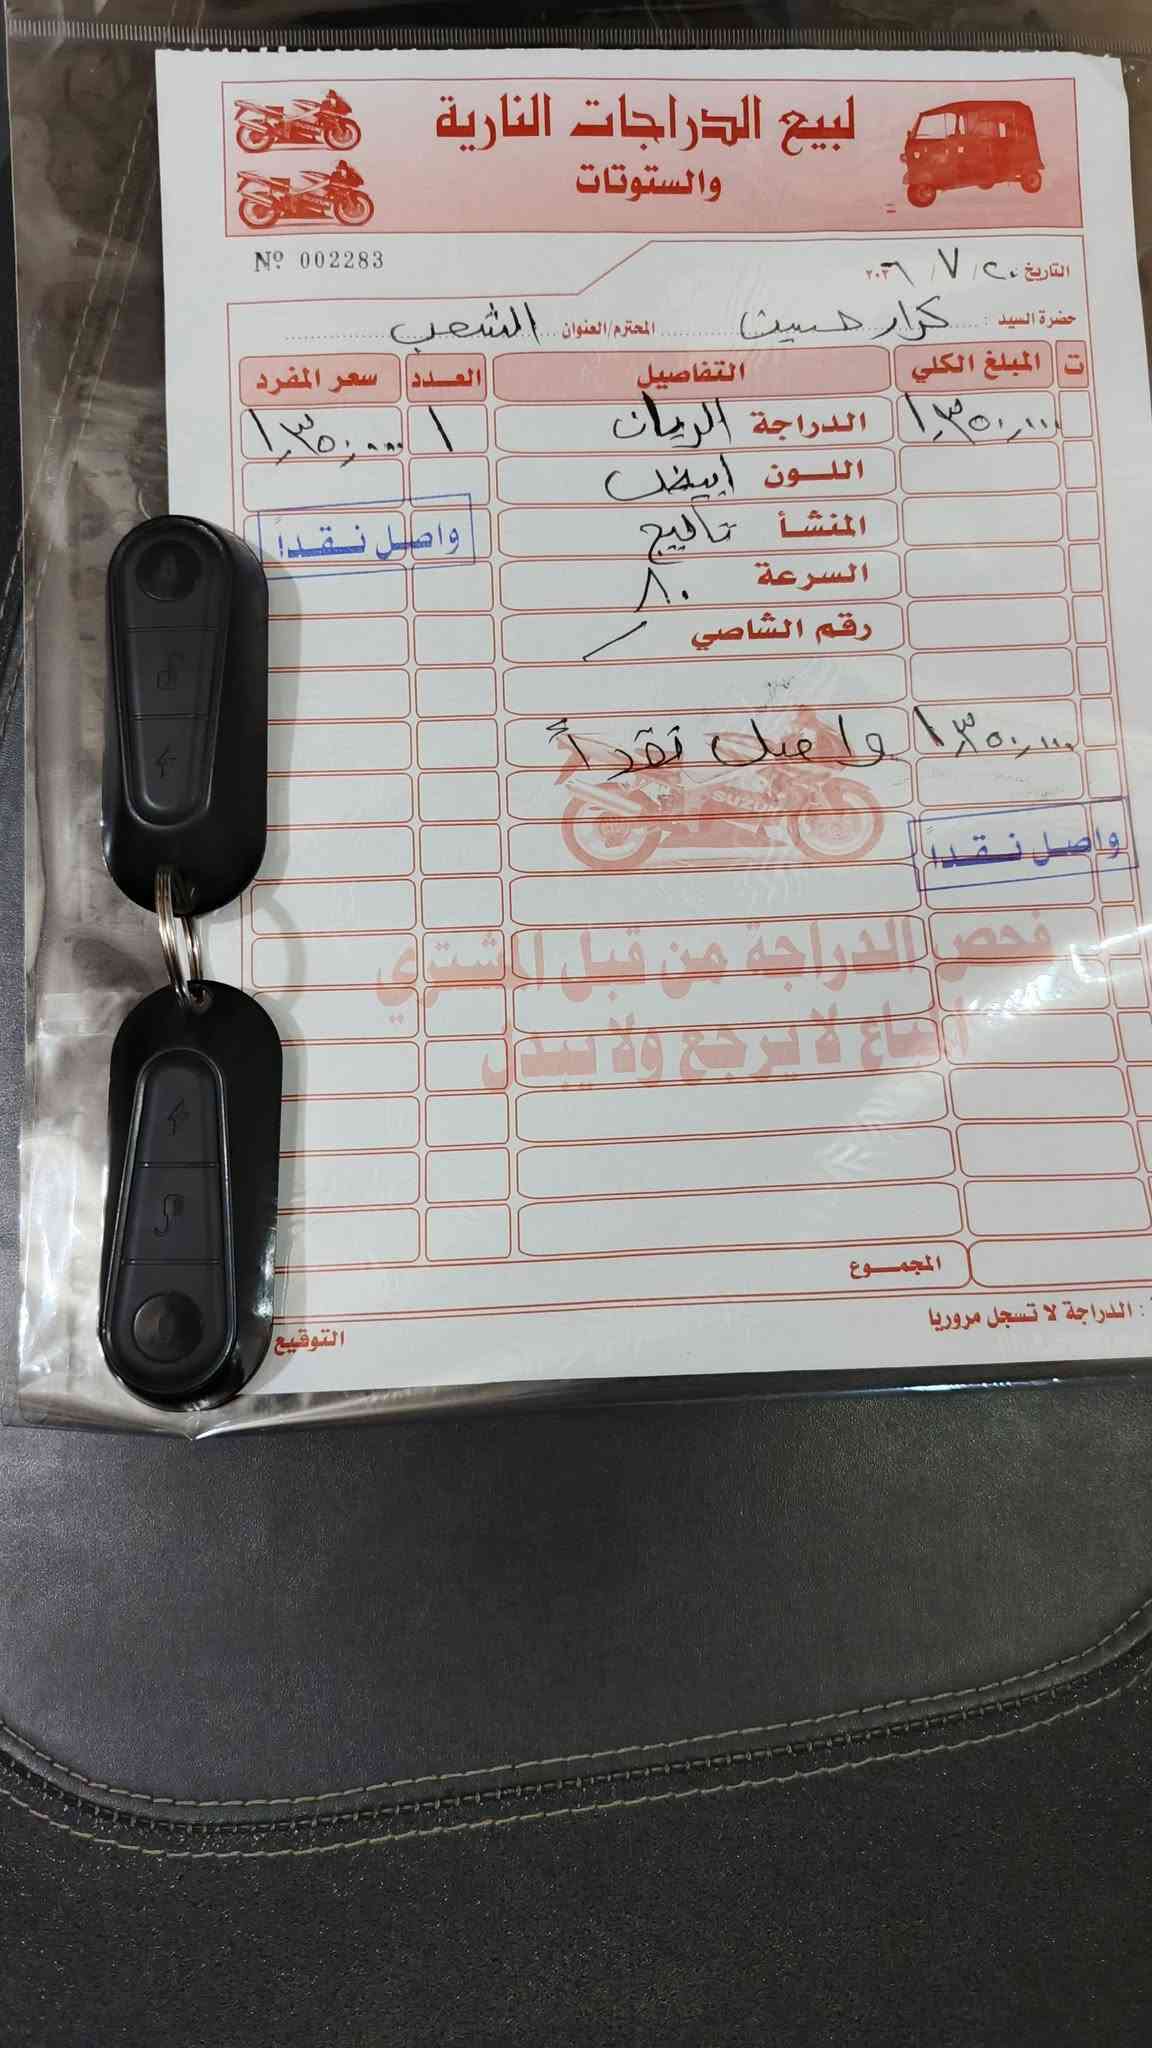 لبيع الدراجات النارية
والستوتات
Nº 002283
التاريخ ٢٠ / ٧ / ٢٠٢٦
حضرة السيد : كرار حسين المحترم/العنوان الشعب
ت المبلغ الكلي التفاصيل العدد سعر المفرد
١,٣٥٠,٠٠٠ الدراجة الريان ١ ١,٣٥٠,٠٠٠
اللون ابيض
المنشأ
واصل نقداً
السرعة ٨٠
رقم الشاصي /
١,٣٥٠,٠٠٠ واصل نقداً
SUZUKI
واصل نقداً
فحص الدراجة من قبل المشتري
المباع لا يرجع ولا يبدل
المجموع
: الدراجة لا تسجل مروريا
التوقيع